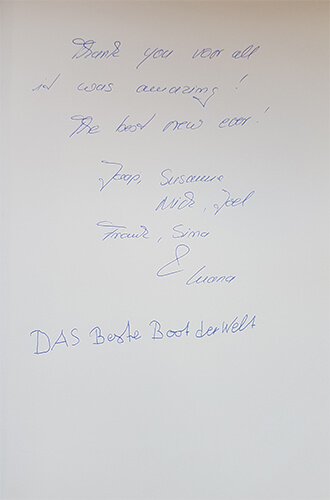 Thank you voor all
it was amazing!
The best crew ever!
Jaap, Susanne
Nick, Joel
Frank, Sina
&
Luana
DAS Beste Boot der Welt